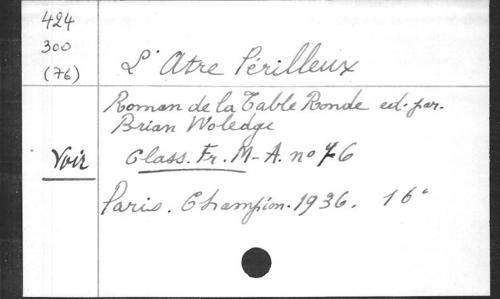 424
300
(76)
L'Atre Périlleux
Roman de la Table Ronde ed. par.
Brian Woledge
Voir
Class. Fr. M-A. no 76
Paris. Champion. 1936. 16°